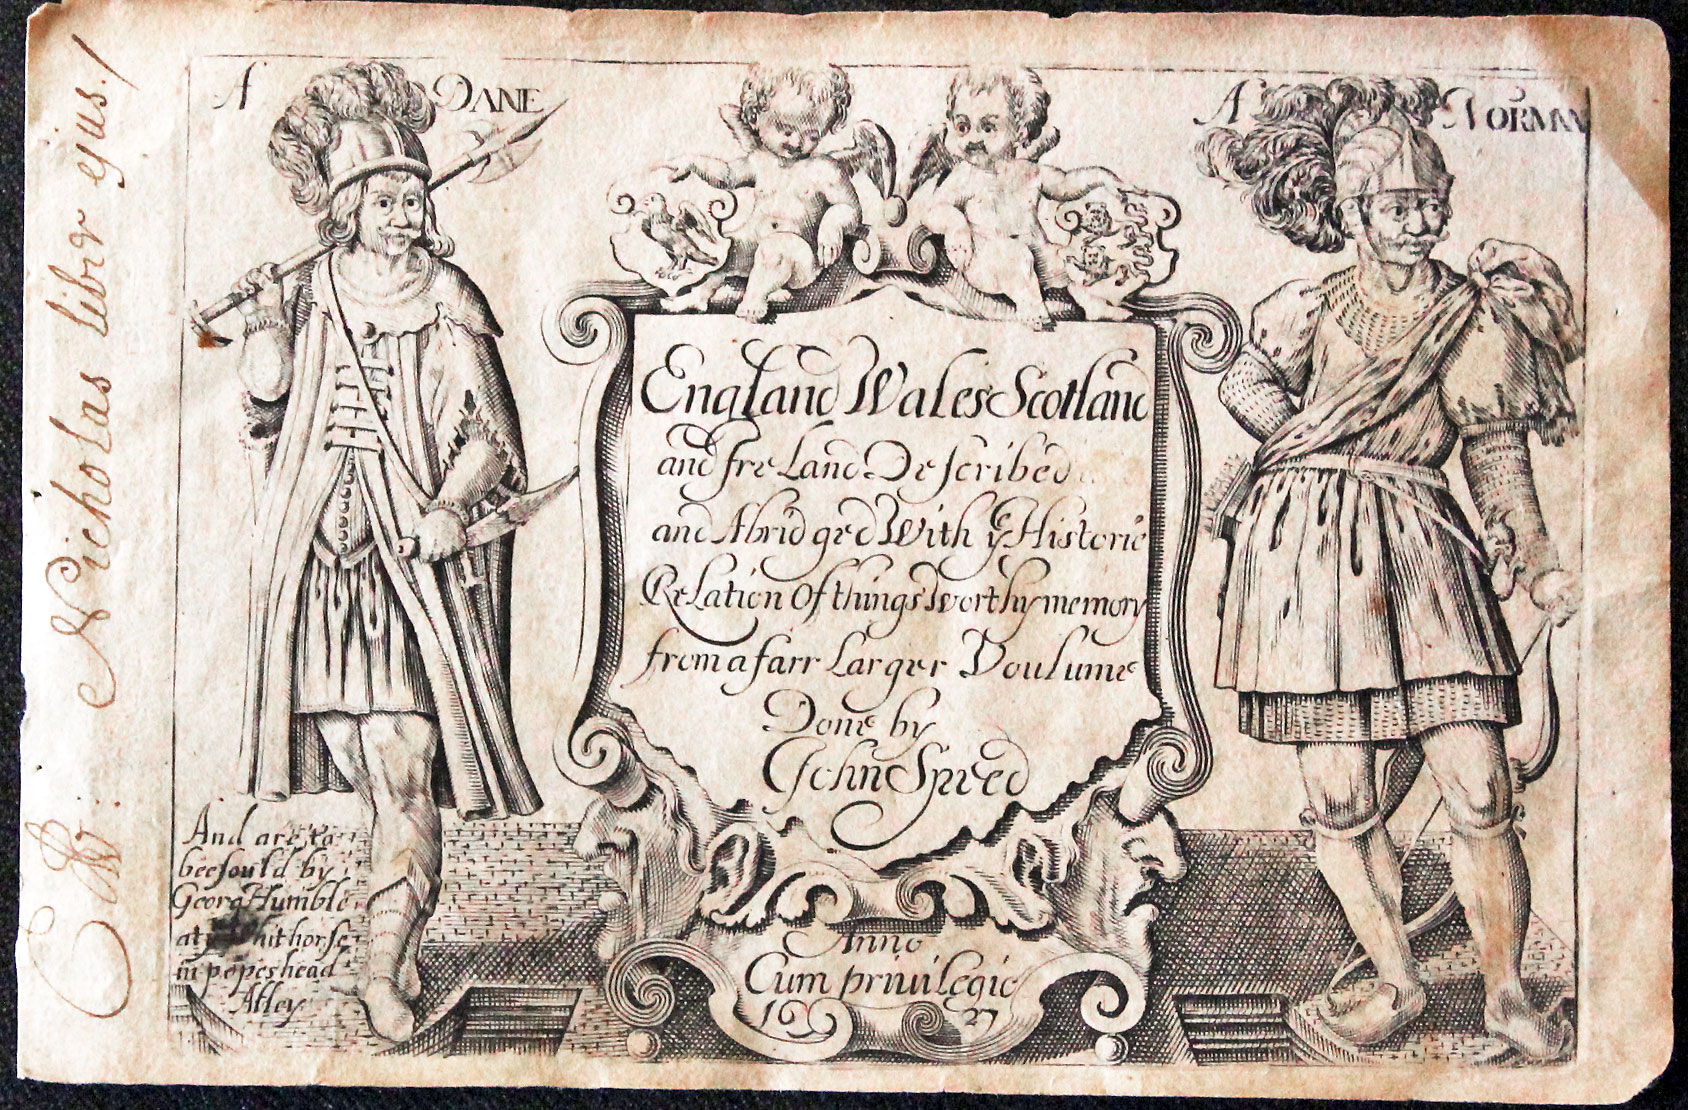 A DANE
A NORMAN
England Wales Scotland
and Ireland Described
and Abridged With ye Historic
Relation Of things Worthy memory
from a farr Larger Voulume
Done by
John Speed
And are to
bee sould by
Georg Humble
at y Whithorse
in popeshead
Alley
Anno
Cum priuilegio
1627
Nicholas liber ejus.